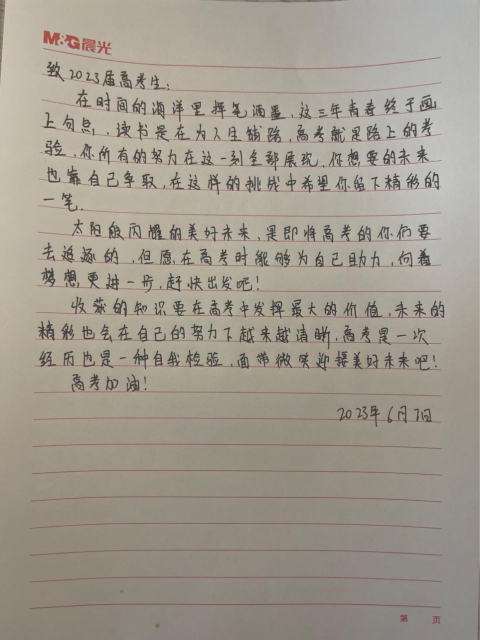 M&G晨光
致2023届高考生：
在时间的海洋里挥笔洒墨，这三年青春终于画
上句息，读书是在为人生铺路，高考就是路上的考
验，你所有的努力在这一刻全部展现，你想要的未来
也靠自己争取，在这样的挑战中希望你留下精彩的
一笔。
太阳般闪耀的美好未来，是即将高考的你们要
去追逐的，但愿在高考时能够为自己助力，向着
梦想更进一步，赶快出发吧！
收获的知识要在高考中发挥最大的价值，未来的
精彩也会在自己的努力下越来越清晰，高考是一次
经历也是一种自我检验，面带微笑迎接美好未来吧！
高考加油！
2023年6月7日
第 页